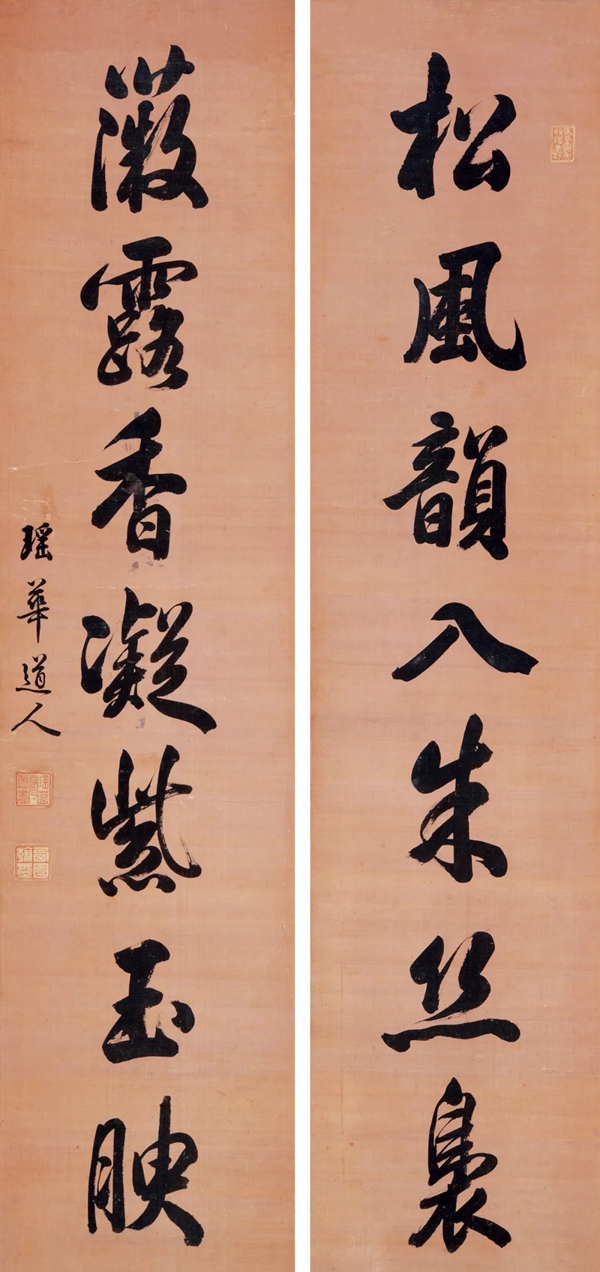 松風韻入朱丝裊
薇露香凝紫玉腴
瑶華道人